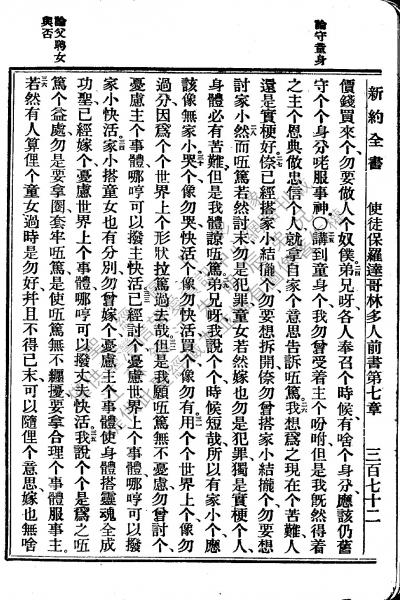 論守童身
論父聘女
與否
新約全書　使徒保羅達哥林多人前書第七章　三百七十二
價錢買來个、勿要做人个奴僕、弟兄呀、各人奉召个時候、有啥个身分、應該仍舊
守个个身分咾服事神。〇講到童身个、我勿曾受着主个吩咐、但是我旣然得着
之主个恩典、做忠信个人、就拿自家个意思告訴㑚篤、我想爲之現在个苦難、人
還是實梗好、倷已經搭家小結髋个、勿要想拆開、倷勿曾搭家小結髋个、勿要想
討家小、然而㑚篤若然討末、勿是犯罪、童女若然嫁、也勿是犯罪、獨是實梗个人、
身體必有苦難、但是我體諒㑚篤、弟兄呀、我說个个時候短哉、所以有家小个、應
該像無家小、哭个、像勿哭、快活个、像勿快活、買个、像勿有、用个个世界上个、像勿
過分、因爲个个世界上个形狀拉篤過去哉、但是我願㑚篤無不憂慮、勿曾討个、
憂慮主个事體、哪哼可以撥主快活、已經討个、憂慮世界上个事體、哪哼可以撥
家小快活、家小搭童女也有分別、勿曾嫁个、憂慮主个事體、使身體搭靈魂全成
功聖、已經嫁个、憂慮世界上个事體、哪哼可以撥丈夫快活、我說个个、是爲之㑚
篤个益處、勿是要拿圈套牢㑚篤、是使㑚篤無不纏擾、要拿合理个事體服事主、
若然有人算俚个童女過時是勿好、幷且不得已末、可以隨俚个意思、嫁也無啥